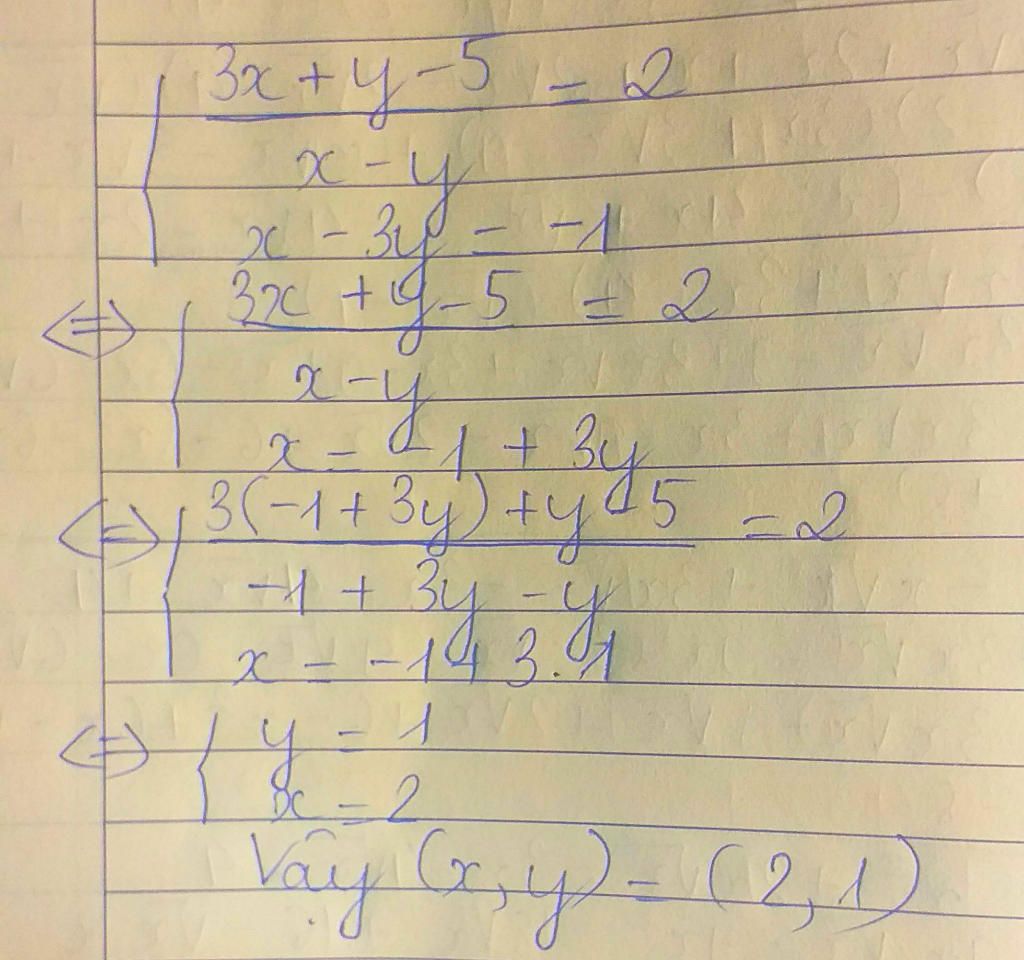 3x + y - 5 = 2
x - y
x - 3y = -1
3x + y - 5 = 2
⇔
x - y
x = -1 + 3y
3(-1 + 3y) + y - 5 = 2
⇔
-1 + 3y - y
x = -1 + 3.1
⇔ y = 1
x = 2
Vậy (x, y) = (2, 1)